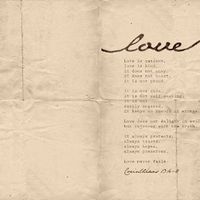 love
Love is patient,
love is kind.
It does not envy,
it does not boast,
it is not proud.
It is not rude,
it is not self-seeking,
it is not
easily angered,
it keeps no record of wrongs.
Love does not delight in evil
but rejoices with the truth.
It always protects,
always trusts,
always hopes,
always perseveres.
Love never fails.
Corinthians 13:4-8